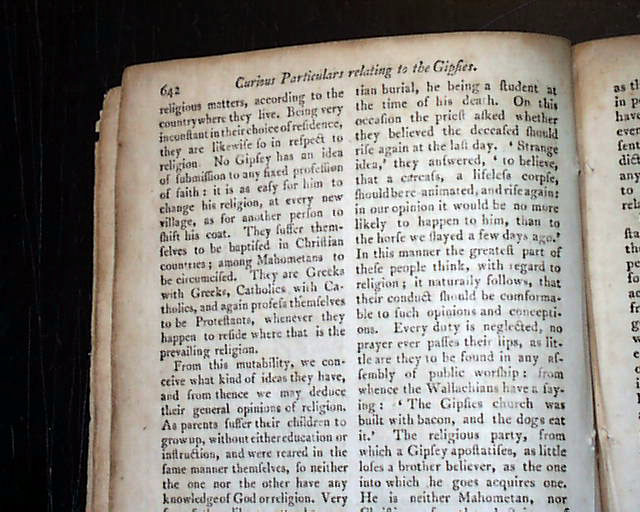 642
Curious Particulars relating to the Gipſies.
religious matters, according to the
country where they live. Being very
inconſtant in their choice of reſidence,
they are likewiſe ſo in reſpect to
religion. No Gipſey has an idea
of ſubmiſſion to any fixed profeſſion
of faith: it is as eaſy for him to
change his religion, at every new
village, as for another perſon to
ſhift his coat. They ſuffer them-
ſelves to be baptiſed in Chriſtian
countries; among Mahometans to
be circumciſed. They are Greeks
with Greeks, Catholics with Ca-
tholics, and again profeſs themſelves
to be Proteſtants, whenever they
happen to reſide where that is the
prevailing religion.
From this mutability, we con-
ceive what kind of ideas they have,
and from thence we may deduce
their general opinions of religion.
As parents ſuffer their children to
grow up, without either education or
inſtruction, and were reared in the
ſame manner themſelves, ſo neither
the one nor the other have any
knowledge of God or religion. Very
tian burial, he being a ſtudent at
the time of his death. On this
occaſion the prieſt aſked whether
they believed the deceaſed ſhould
riſe again at the laſt day. ‘ Strange
idea,’ they anſwered, ‘ to believe,
that a carcaſs, a lifeleſs corpſe,
ſhould be re-animated, and riſe again:
in our opinion it would be no more
likely to happen to him, than to
the horſe we flayed a few days ago.’
In this manner the greateſt part of
theſe people think, with regard to
religion; it naturally follows, that
their conduct ſhould be comforma-
ble to ſuch opinions and concepti-
ons. Every duty is neglected, no
prayer ever paſſes their lips, as lit-
tle are they to be found in any aſ-
ſembly of public worſhip: from
whence the Wallachians have a ſay-
ing: ‘ The Gipſies church was
built with bacon, and the dogs eat
it.’ The religious party, from
which a Gipſey apoſtatiſes, as little
loſes a brother believer, as the one
into which he goes acquires one.
He is neither Mahometan, nor